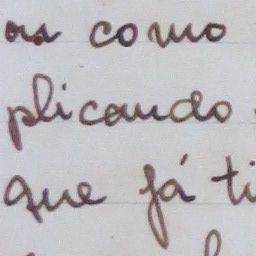 como
plicando
que já ti